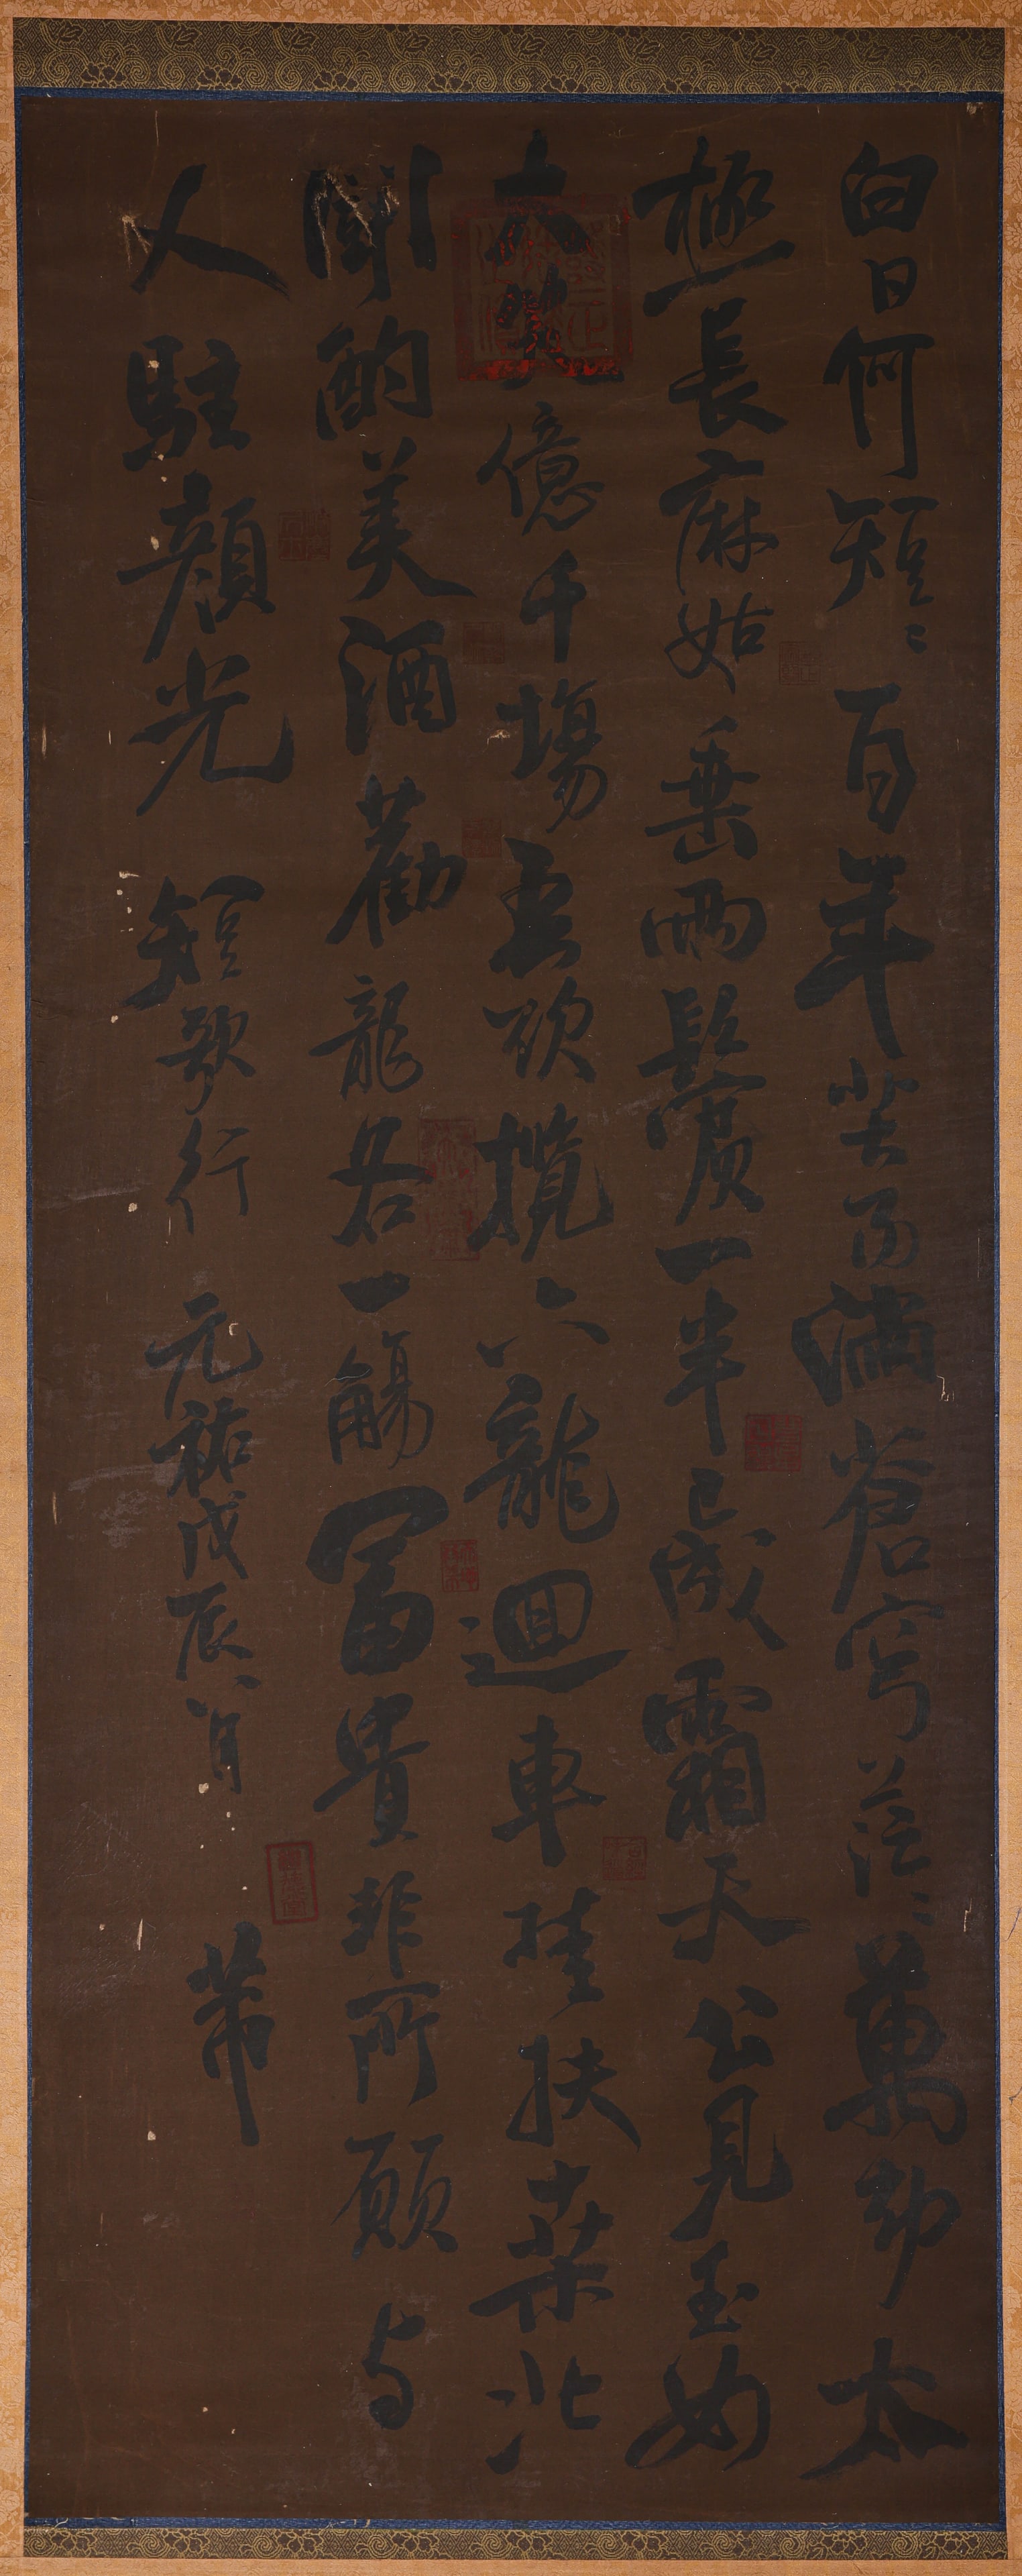 白日何短〻百年苦而滿蒼穹茫〻萬劫太
極長麻姑垂兩鬢一半已成霜天公見玉女
大笑億千場吾欲攬六龍迴車挂扶桑北
斗酌美酒勸龍各一觴富貴非所願与
人駐顏光 短歌行 元祐戊辰八月 芾